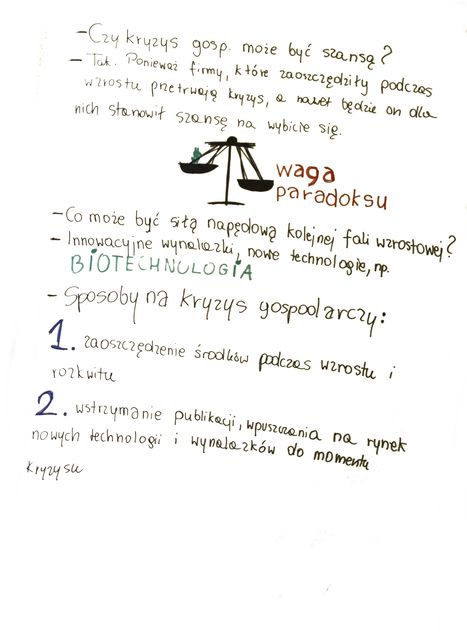 - Czy kryzys gosp. może być szansą?
- Tak. Ponieważ firmy, które zaoszczędziły podczas
wzrostu przetrwają kryzys, a nawet będzie on dla
nich stanowił szansę na wybicie się.
waga
paradoksu
- Co może być siłą napędową kolejnej fali wzrostowej?
- Innowacyjne wynalazki, nowe technologie, np.
BIOTECHNOLOGIA
- Sposoby na kryzys gospodarczy:
1. zaoszczędzenie środków podczas wzrostu i
rozkwitu
2. wstrzymanie publikacji, wpuszczania na rynek
nowych technologii i wynalazków do momentu
kryzysu